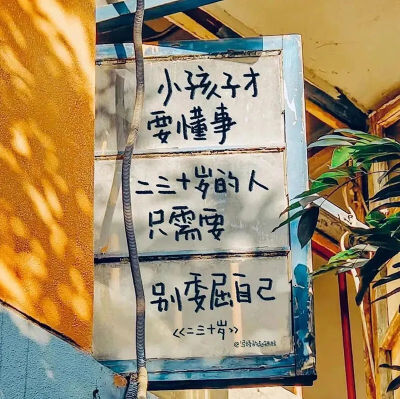 小孩子才
要懂事
二三十岁的人
只需要
别委屈自己
《二三十岁》